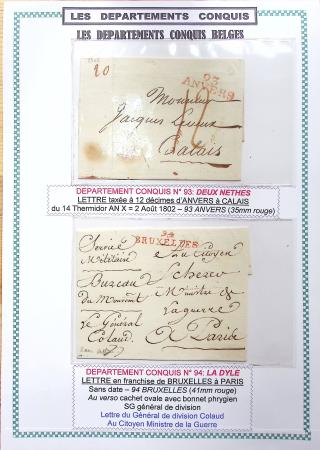 LES DEPARTEMENTS CONQUIS
LES DEPARTEMENTS CONQUIS BELGES
93
ANVERS
Monsieur
Jacques
Calais
DEPARTEMENT CONQUIS N° 93: DEUX NETHES
LETTRE taxée à 12 décimes d'ANVERS à CALAIS
du 14 Thermidor AN X = 2 Août 1802 – 93 ANVERS (35mm rouge)
94
BRUXELLES
Service Militaire
au Citoyen
Bureau Scherer
du Mouvent Ministre de
la guerre
le Général
Colaud. A Paris
DEPARTEMENT CONQUIS N° 94: LA DYLE
LETTRE en franchise de BRUXELLES à PARIS
Sans date – 94 BRUXELLES (41mm rouge)
Au verso cachet ovale avec bonnet phrygien
SG général de division
Lettre du Général de division Colaud
Au Citoyen Ministre de la Guerre